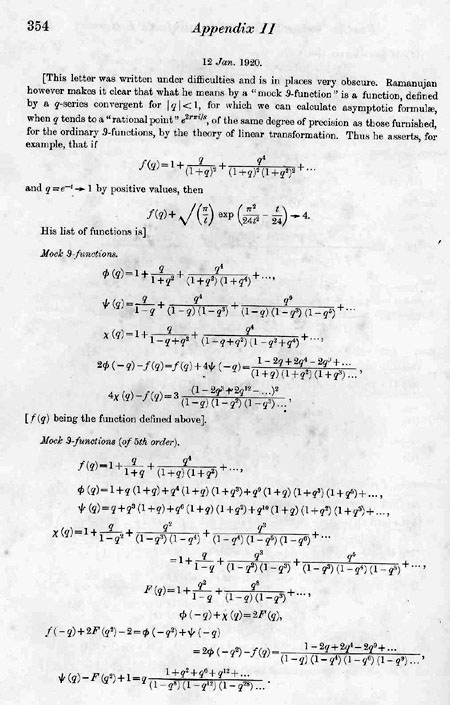 354
Appendix II
12 Jan. 1920.
[This letter was written under difficulties and is in places very obscure. Ramanujan
however makes it clear that what he means by a "mock ϑ-function" is a function, defined
by a q-series convergent for |q|<1, for which we can calculate asymptotic formulæ,
when q tends to a "rational point" e^{2rπi/s}, of the same degree of precision as those furnished,
for the ordinary ϑ-functions, by the theory of linear transformation. Thus he asserts, for
example, that if
f(q)=1+q/(1+q)²+q⁴/((1+q)²(1+q²)²)+...
and q=e^{-t}→1 by positive values, then
f(q)+√(π/t) exp(π²/24t−t/24)→4.
His list of functions is]
Mock ϑ-functions.
φ(q)=1+q/(1+q²)+q⁴/((1+q²)(1+q⁴))+...,
ψ(q)=q/(1−q)+q⁴/((1−q)(1−q³))+q⁹/((1−q)(1−q³)(1−q⁵))+...
χ(q)=1+q/(1−q+q²)+q⁴/((1−q+q²)(1−q²+q⁴))+...,
2φ(−q)−f(q)=f(q)+4ψ(−q)=(1−2q+2q⁴−2q⁹+...)/((1+q)(1+q²)(1+q³)...),
4χ(q)−f(q)=3(1−2q³+2q¹²−...)²/((1−q)(1−q²)(1−q³)...),
[f(q) being the function defined above].
Mock ϑ-functions (of 5th order).
f(q)=1+q/(1+q)+q⁴/((1+q)(1+q²))+...,
φ(q)=1+q(1+q)+q⁴(1+q)(1+q³)+q⁹(1+q)(1+q³)(1+q⁵)+...,
ψ(q)=q+q³(1+q)+q⁶(1+q)(1+q²)+q¹⁰(1+q)(1+q²)(1+q³)+...,
χ(q)=1+q/(1−q²)+q²/((1−q³)(1−q⁴))+q³/((1−q⁴)(1−q⁵)(1−q⁶))+...
=1+q/(1−q)+q³/((1−q²)(1−q³))+q⁵/((1−q³)(1−q⁴)(1−q⁵))+...,
F(q)=1+q²/(1−q)+q⁸/((1−q)(1−q³))+...,
φ(−q)+χ(q)=2F(q),
f(−q)+2F(q²)−2=φ(−q²)+ψ(−q)
=2φ(−q²)−f(q)=(1−2q+2q⁴−2q⁹+...)/((1−q)(1−q⁴)(1−q⁶)(1−q⁹)...),
ψ(q)−F(q²)+1=q(1+q²+q⁶+q¹²+...)/((1−q⁸)(1−q¹²)(1−q²⁸)...).